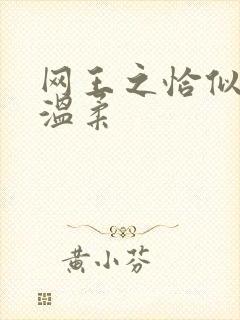 网王之恰似
温柔
黄小芬